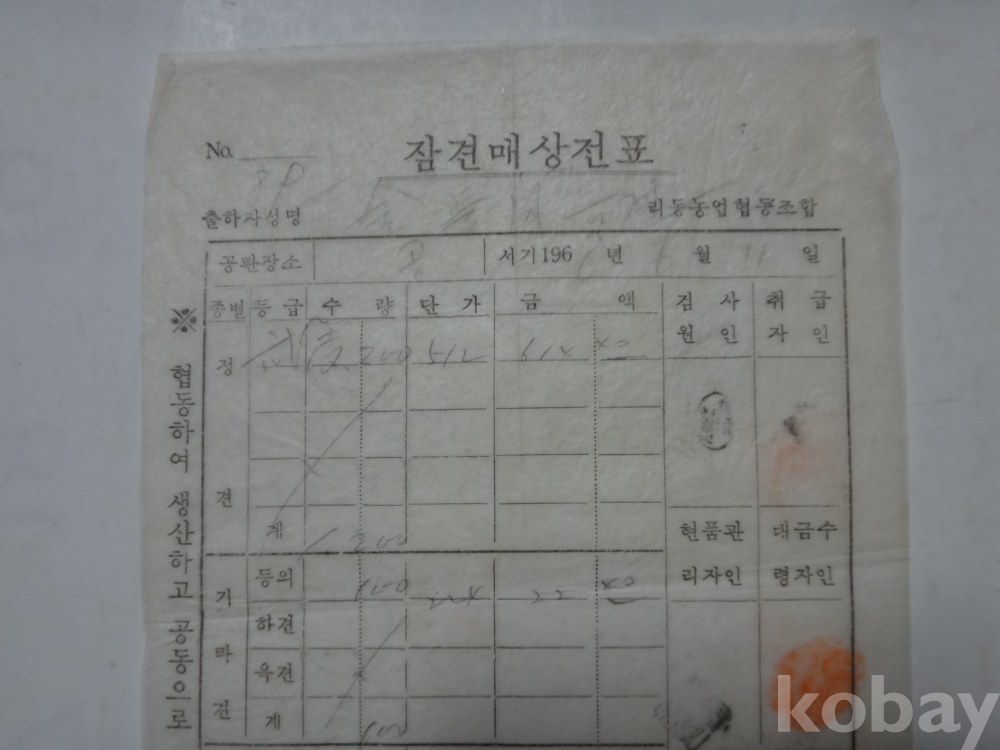 No.
잠견매상전표
출하자성명
리동농업협동조합
공판장소
서기196 년 월 11 일
종별 등급 수 량 단 가 금 액 검 사 원 인 취 급 자 인
정 견
200 512 614 40
계 200
현품관리자인 대금수령자인
기타견
등외 100 224 22 40
하견
옥견
계 100
※ 협동하여 생산하고 공동으로
kobay